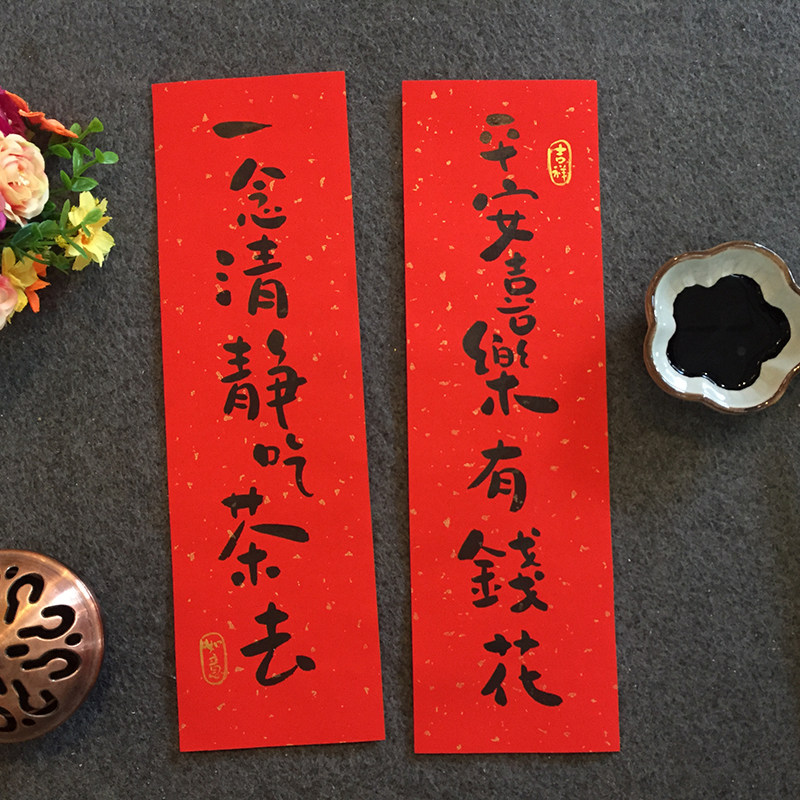 平安喜樂有錢花
吉祥
一念清靜吃茶去
如意